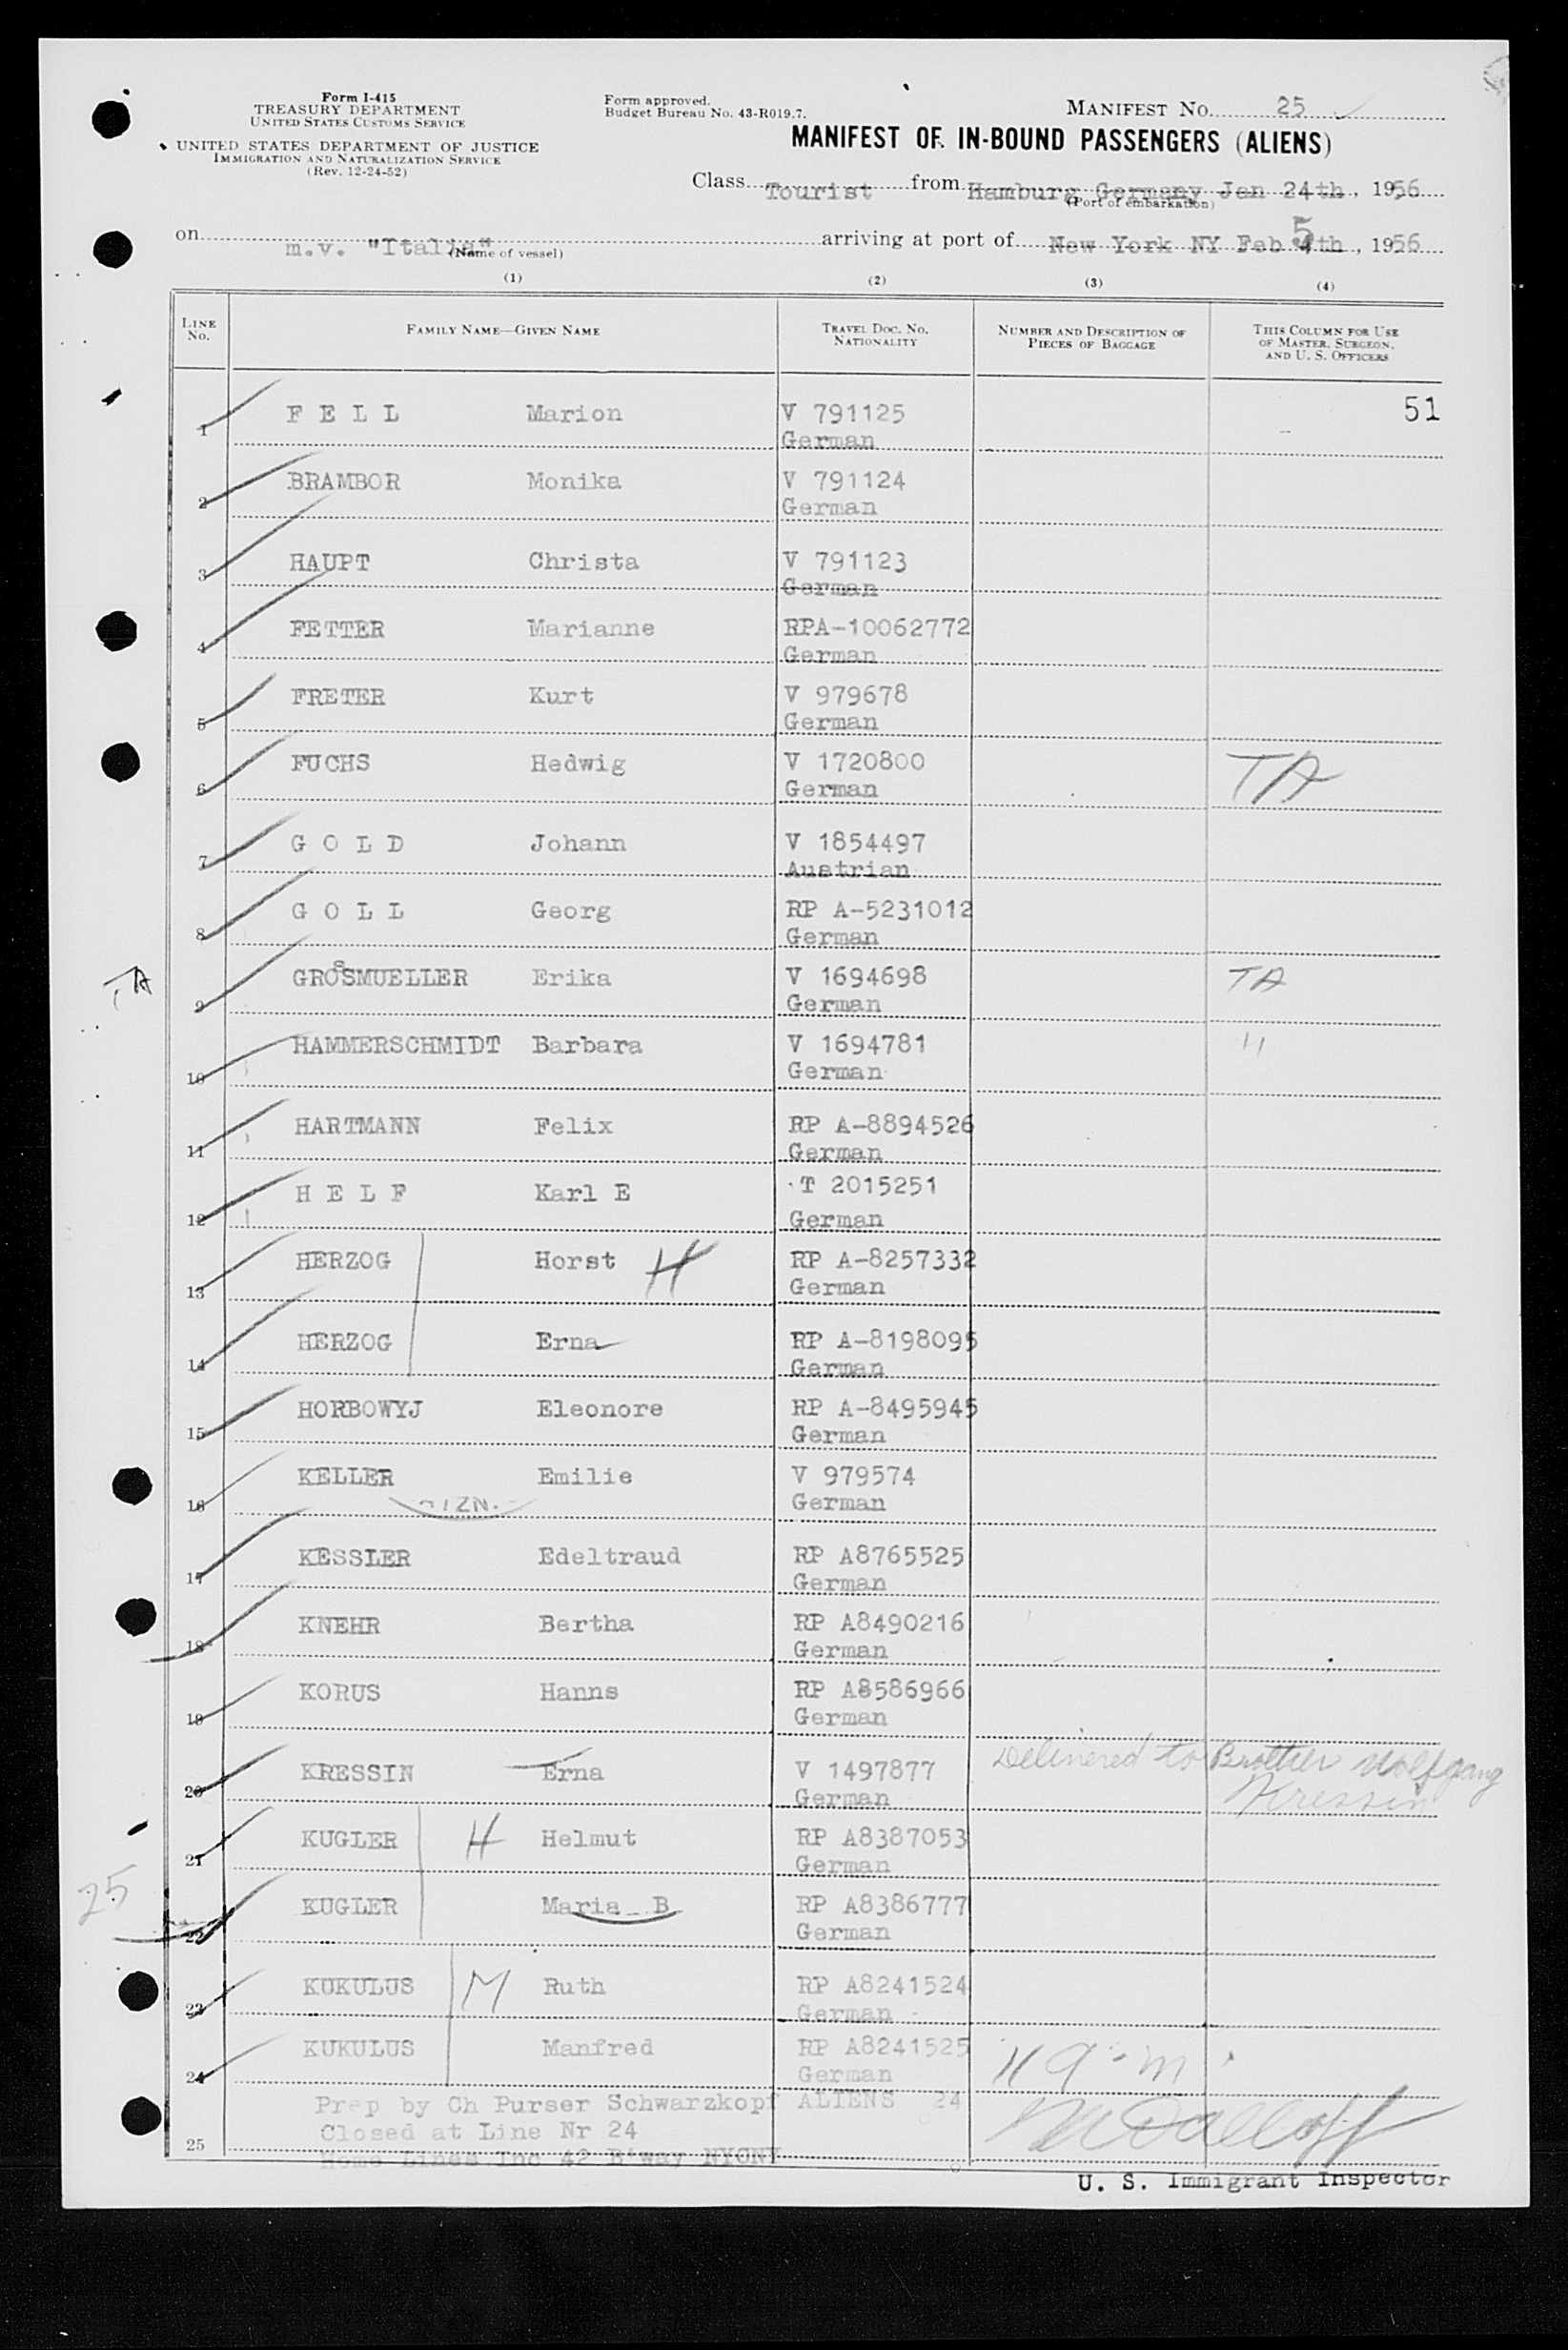 Form I-415
TREASURY DEPARTMENT
UNITED STATES CUSTOMS SERVICE
UNITED STATES DEPARTMENT OF JUSTICE
IMMIGRATION AND NATURALIZATION SERVICE
(Rev. 12-24-52)
Form approved.
Budget Bureau No. 43-R019.7.
MANIFEST NO. 25
MANIFEST OF IN-BOUND PASSENGERS (ALIENS)
Class Tourist from Hamburg Germany Jan 24th, 1956
(Port of embarkation)
on m.v. "Italia" arriving at port of New York NY Feb 5th, 1956
(Name of vessel)
(1) (2) (3) (4)
LINE NO. FAMILY NAME—GIVEN NAME TRAVEL DOC. NO. NATIONALITY NUMBER AND DESCRIPTION OF PIECES OF BAGGAGE THIS COLUMN FOR USE OF MASTER, SURGEON, AND U. S. OFFICERS
1 F E L L Marion V 791125 51
German
2 BRAMBOR Monika V 791124
German
3 HAUPT Christa V 791123
German
4 FETTER Marianne RPA-10062772
German
5 FRETER Kurt V 979678
German
6 FUCHS Hedwig V 1720800 TA
German
7 G O L D Johann V 1854497
Austrian
8 G O L L Georg RP A-5231012
German
TA 9 GROSSMUELLER Erika V 1694698 TA
German
10 HAMMERSCHMIDT Barbara V 1694781 "
German
11 HARTMANN Felix RP A-8894526
German
12 H E L F Karl E T 2015251
German
13 HERZOG Horst H RP A-8257332
German
14 HERZOG Erna RP A-8198095
German
15 HORBOWYJ Eleonore RP A-8495945
German
16 KELLER Emilie V 979574
German
17 KESSLER Edeltraud RP A8765525
German
18 KNEHR Bertha RP A8490216
German
19 KORUS Hanns RP A8586966
German
20 KRESSIN Erna V 1497877 Delivered to Brother Wolfgang
German Kressin
21 KUGLER H Helmut RP A8387053
German
25
22 KUGLER Maria B RP A8386777
German
23 KUKULUS M Ruth RP A8241524
German
24 KUKULUS Manfred RP A8241525
German
Prep by Ch Purser Schwarzkopf ALIENS 24
Closed at Line Nr 24
25 Home Lines Inc 42 B'way NYCNY
U. S. Immigrant Inspector